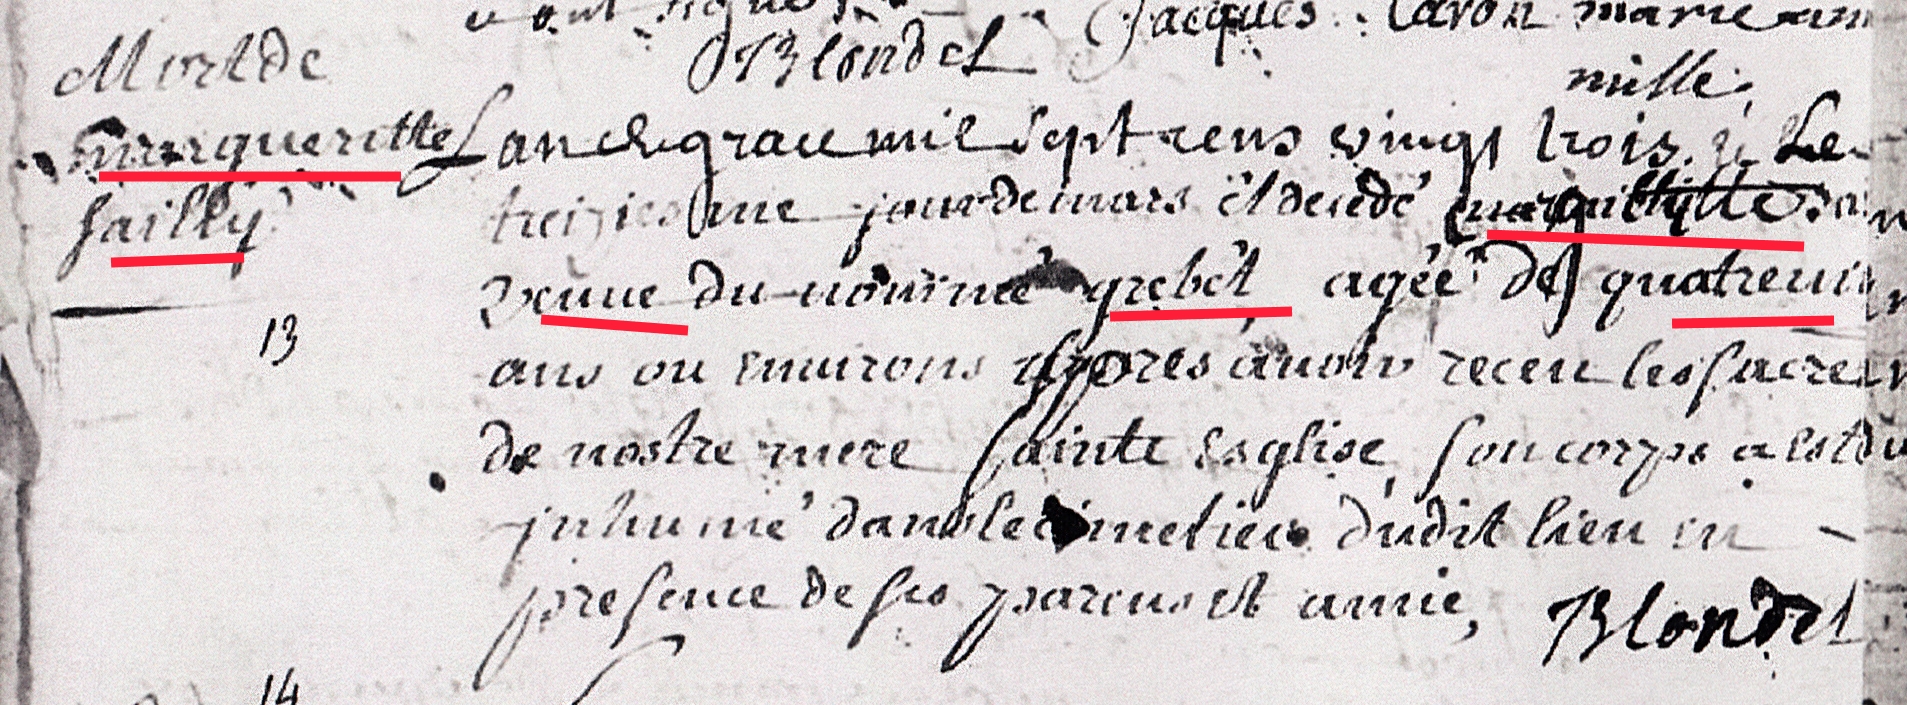 Jacques Caron marie ann
Blondel
mille
Mort de
margueritte
sailly
13
Lan de grace mil sept cens vingt trois Le
treiziesme jour de mars est decedé
veuue du nommé grebet agée de quatreuin
ans ou enuirons apres auoir receu les sacrem
de nostre mere sainte Esglise son corps a esté
inhumé dans le cimetiere dudit lieu en
presence de ses parens et amie,
Blondel
14